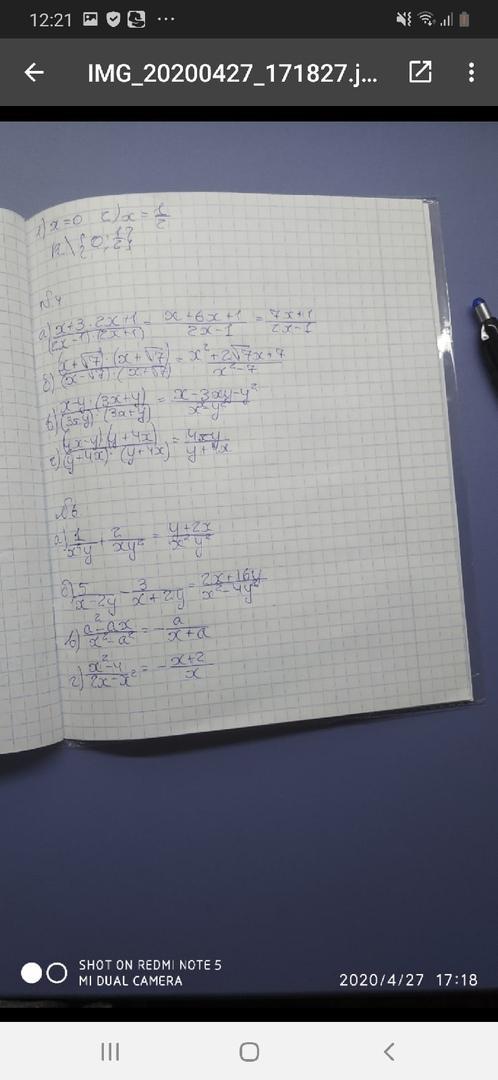 12:21
IMG_20200427_171827.j...
x=0 2) x = 1/2
R\{0; 1/2}
№4
а) x+3·2x+1/(2x-1)·(2x+1) = x+6x+1/2x-1 = 7x+1/2x-1
б) (x+√7)·(x+√7)/(x-√7)·(x+√7) = x²+2√7x+7/x²-7
в) x-y·(3x+y)/(3x+y) = x-3xy-y²/x²-y²
г) (4x-y)(y+4x)/(y+4x)·(y+4x) = 4xy/y+4x
а) 1/x²y + 2/xy² = y+2x/x²y²
б) 5/x-2y - 3/x+2y = 2x+16y/x²-4y²
в) a²-ax/x²-a² = -a/x+a
г) x²-4/2x-x² = -x+2/x
SHOT ON REDMI NOTE 5
MI DUAL CAMERA
2020/4/27 17:18